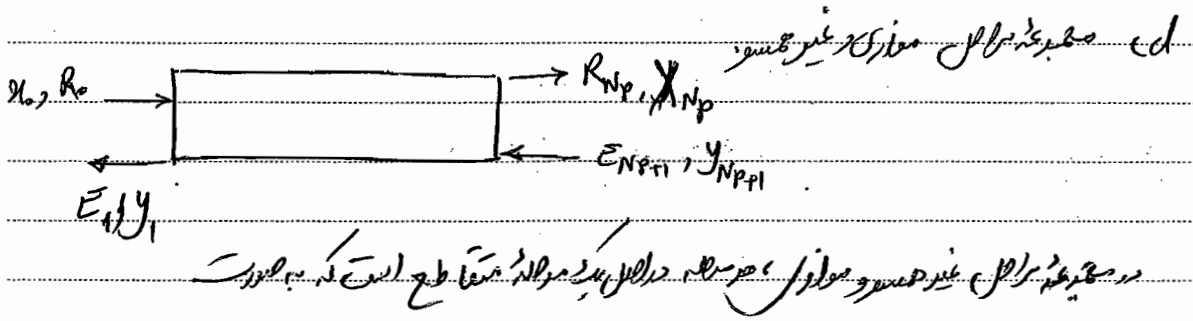 d) مجموعهٔ مراحل موازی و غیر همسو:
x₀, R₀ R_Np, X_Np
E_Np+1, y_Np+1
E₁, y₁
در مجموعهٔ مراحل غیر همسو و موازی، هر مرحله در اصل یک مرحلهٔ متقاطع است که به صورت